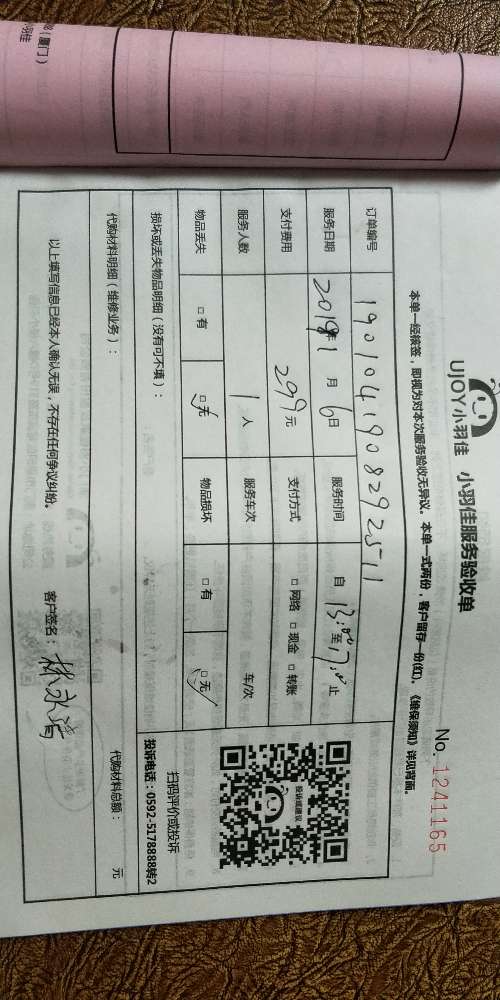 UJOY小羽佳 小羽佳服务验收单
No. 1241165
本单一经核签，即视为对本次服务验收无异议。本单一式两份，客户留存一份(红)。《维保须知》详见背面。
订单编号 190104190829251 1
服务日期 2019年1月6日 服务时间 自 13:00 至 17:00 止
支付费用 299元 支付方式 □网络 □现金 □转账
服务人数 1人 服务车次 车/次
物品丢失 □有 □无 物品损坏 □有 □无
投诉或建议
扫码评价或投诉
投诉电话：0592-5178888转2
损坏或丢失物品明细（没有可不填）：
代购材料明细（维修业务）：
代购材料总额： 元
以上填写信息已经本人确认无误，不存在任何争议纠纷。 客户签名：
（厦门）
小羽佳